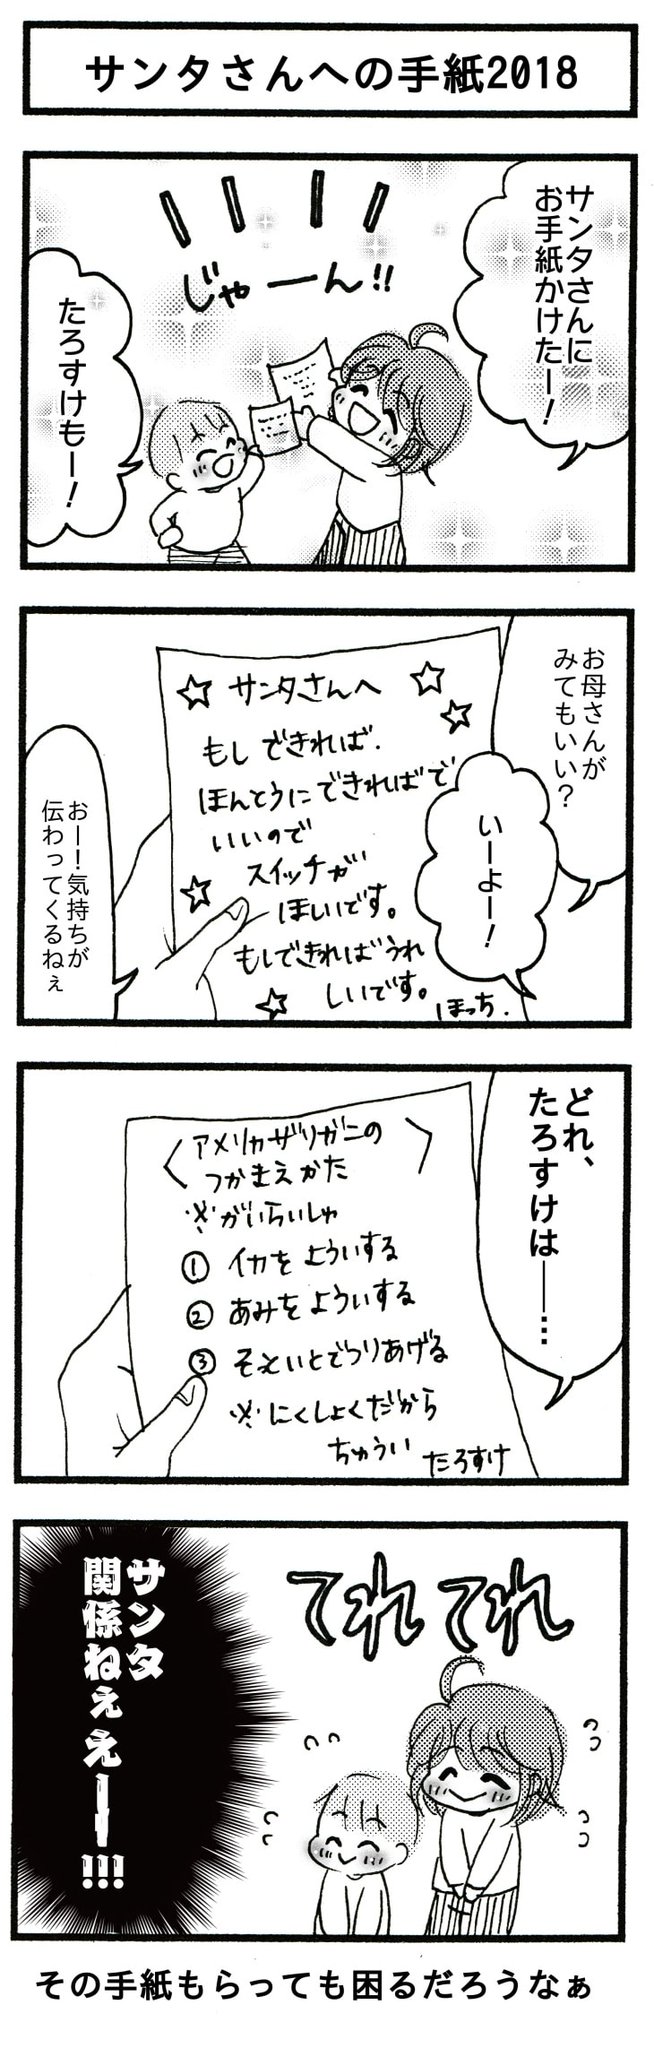 サンタさんへの手紙2018
サンタさんに
お手紙かけたー！
じゃーん!!
たろすけもー！
お母さんが
みてもいい？
いーよー！
☆サンタさんへ☆
もしできれば、
ほんとうにできればで
いいので
スイッチが
ほしいです。
もしできればうれ
しいです。
ほっち.
おー！気持ちが
伝わってくるねぇ
どれ、
たろすけは――…
〈アメリカザリガニの
つかまえかた〉
※がいらいしゅ
①イカをよういする
②あみをよういする
③そっといとでつりあげる
※にくしょくだから
ちゅうい
たろすけ
てれてれ
サンタ
関係ねぇえーー!!!
その手紙もらっても困るだろうなぁ